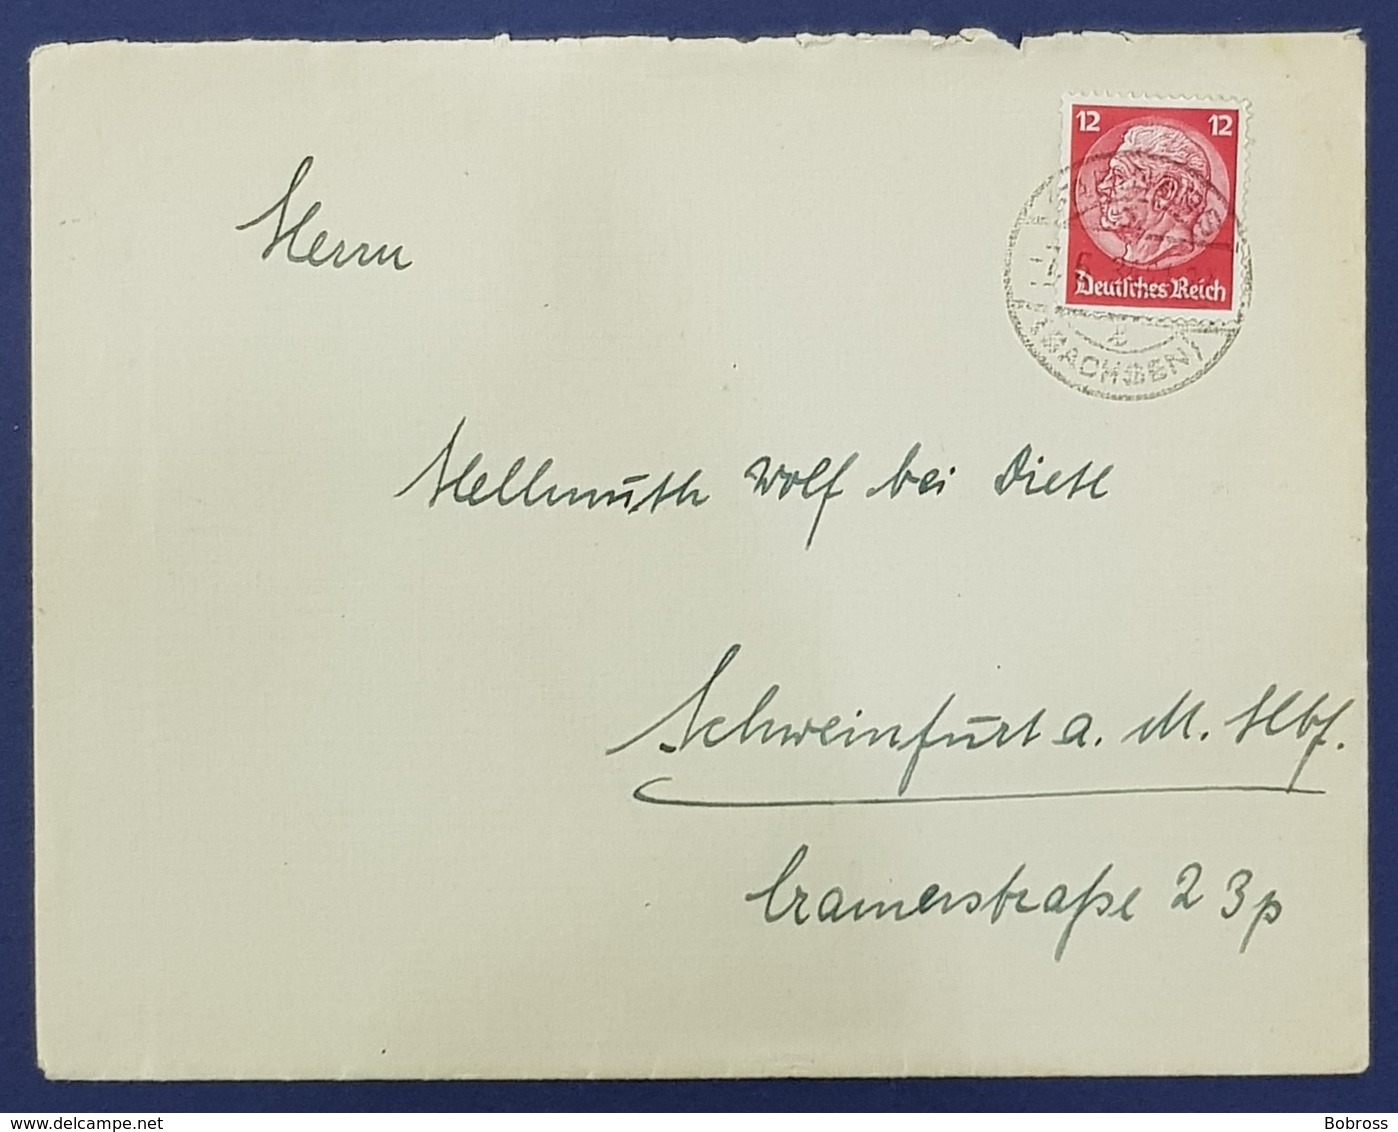 12 12
Deutsches Reich
(SACHSEN)
Herrn
Hellmuth Wolf bei Dietl
Schweinfurt a. M. Hbf.
Cramerstraße 23p
delcampe.net
Bobross